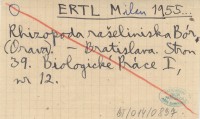 ERTL Milan 1955...
Rhizopoda rašeliniska Bór,
(Orava) – Bratislava. Stron
39. Biologické Práce I,
nr 12.